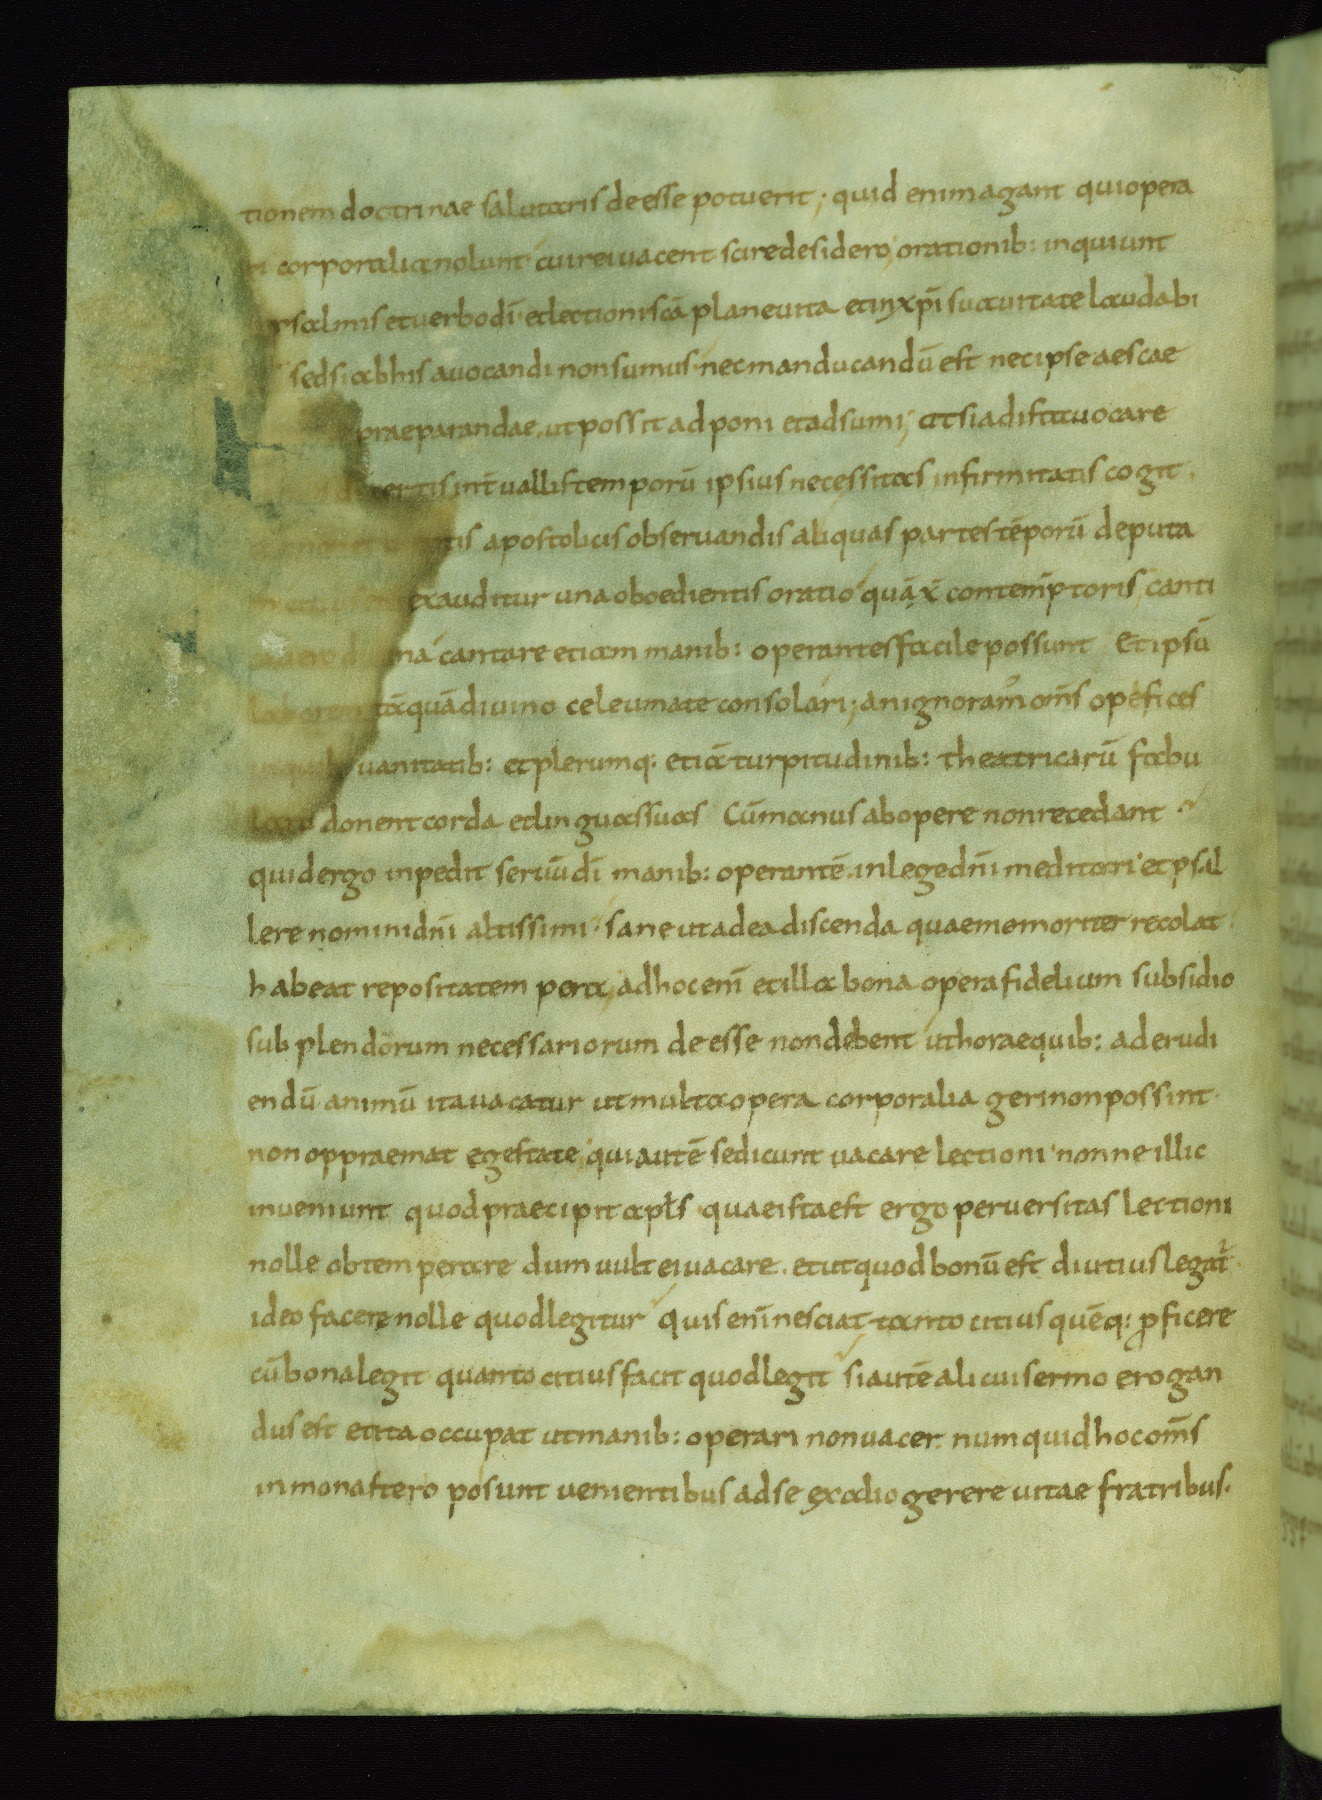 tionem doctrinae salutaris deesse potuerit; quid enim agant qui opera
ri corporalit nolunt cui rei vacent scire desidero orationib: inquiunt
psalmis et verbo dī et lectioni scā plane vita et in xp̄i suavitate laudabi
sed si ab his avocandi non sumus nec manducandū est nec ipse aescae
praeparandae ut possit adponi et adsumi; at si ad ista vocare
certis int̄vallis temporū ipsius necessitas infirmitatis cogit.
tis apostolicis observandis aliquas partes tēporū deputa
exauditur una oboedientis oratio quā x̄ contemptoris; canti
na cantare etiam manib: operantes facile possunt Et ipsū
tāquā divino celeumate consolari; an ignoram̉ om̄s opefices
vanitatib: et plerumq: etiā turpitudinib: theatricarū fabu
donent corda et linguas suas Cū manus ab opere non recedant
quid ergo inpedit servū dī manib: operantē in lege dn̄i meditari et psal
lere nomini dn̄i altissimi sane ut ad ea discenda quae memoriter recolat
habeat repositatem pora; ad hoc enī et illa bona opera fidelium subsidio
subplendorum necessariorum deesse non debent ut horae quib: ad erudi
endū animū ita vacatur ut multa opera corporalia geri non possint
non oppraemat egestate; qui autē se dicunt vacare lectioni nonne illic
inveniunt quod praecipit apłs quae ista est ergo perversitas lectioni
nolle obtemperare dum vult ei vacare et ut quod bonū est diutius legat̉
ideo facere nolle quod legitur Quis enī nesciat tanto citius quēq: ꝓficere
cū bona legit quanto citius facit quod legit si autē alicui sermo erogan
dus est et ita occupat ut manib: operari non vacet numquid hoc om̄s
in monastero posunt venientibus ad se exodio gerere vitae fratribus.